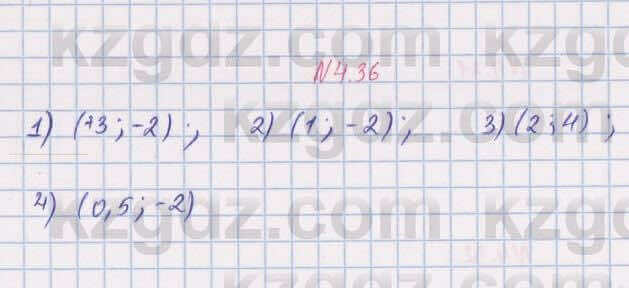 kzgdz.com
N4.36
1) (+3 ; -2) ; 2) (1 ; -2) ; 3) (2 ; 4) ;
kzgdz.com
4) (0,5 ; -2)
kzgdz.com